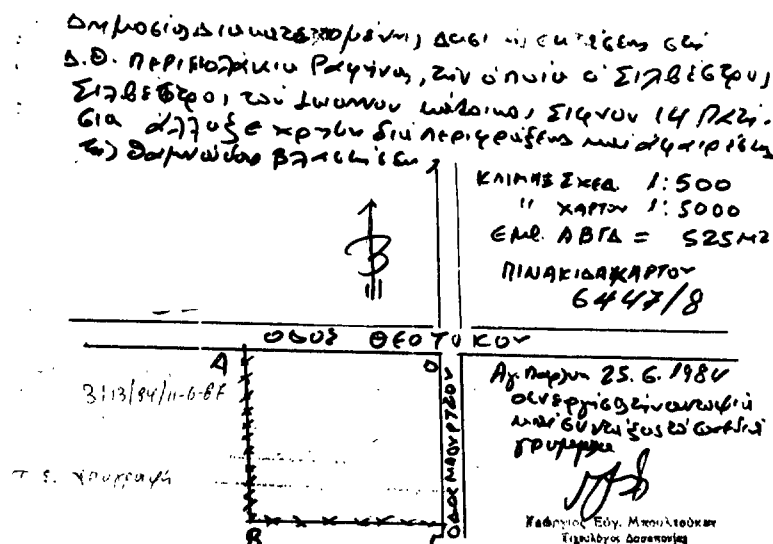 Δημοσίας Διακατεχομένης δασικής εκτάσεως στη
Δ.Θ. Περιβολάκια Ραφήνας, την οποία ο Σιλβέστρος
Σιλβέστρος του Ιωάννου κάτοικος Σίφνου 14 Πατή-
σια άλλαξε χρήση διά περιφράξεως και αφαιρέσεως
της θαμνώδους βλαστήσεως
ΚΛΙΜΑΞ ΣΧΕΔ. 1:500
" ΧΑΡΤΟΥ 1:5000
ΕΜΒ. ΑΒΓΔ = 525 Μ2
ΠΙΝΑΚΙΔΑ ΧΑΡΤΟΥ
6447/8
Β
ΟΔΟΣ ΘΕΟΤΟΚΟΥ
Α
Δ
3113/84/11-6-85
Τ.Σ. υπογραφή
ΟΔΟΣ
Αγ. 25.6.1984
ο ενεργήσας την αυτοψία
και συντάξας το σχεδιά
γραμμα
Β
Γ
Γεώργιος Ευγ. Μπουλτούκας
Τεχνολόγος Δασοπονίας